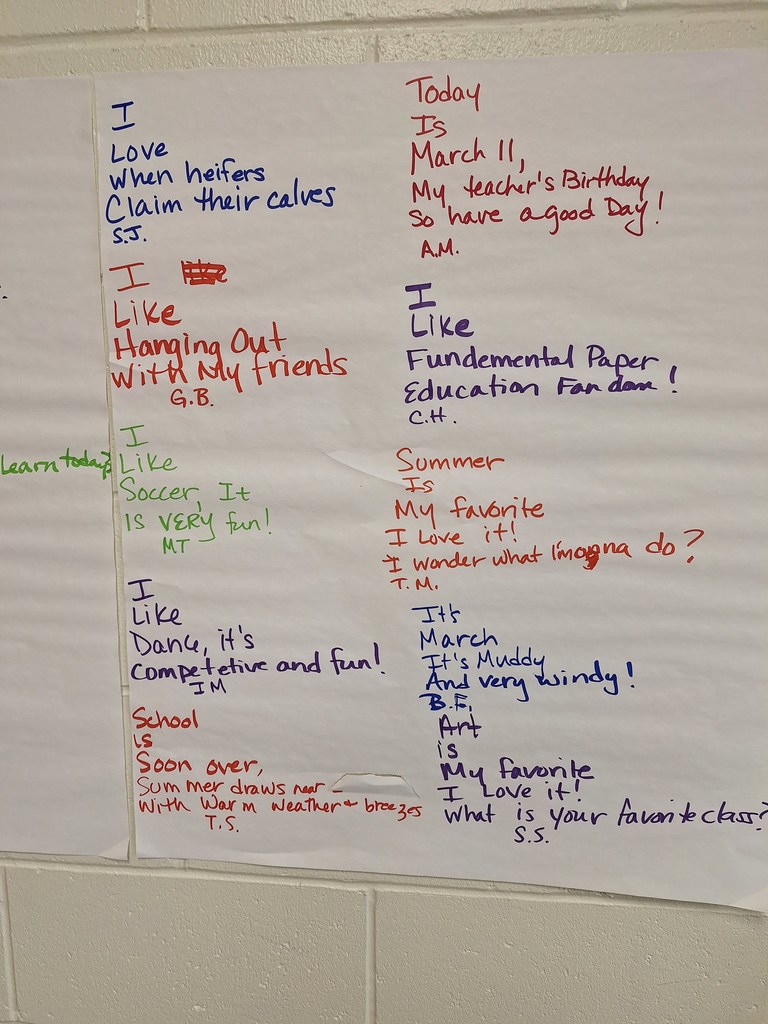 Learn today?
I
Love
When heifers
Claim their calves
S.J.
I
Like
Hanging Out
With My friends
G.B.
I
Like
Soccer, It
is VERY fun!
MT
I
Like
Dance, it's
competetive and fun!
IM
School
is
Soon over,
Summer draws near -
With Warm Weather & breezes
T.S.
Today
Is
March 11,
My teacher's Birthday
So have a good Day!
A.M.
I
Like
Fundemental Paper
Education Fandom!
C.H.
Summer
Is
My favorite
I Love it!
I wonder what I'm gonna do?
T.M.
It's
March
It's Muddy
And very windy!
B.E.
Art
is
My favorite
I Love it!
What is your favorite class?
S.S.